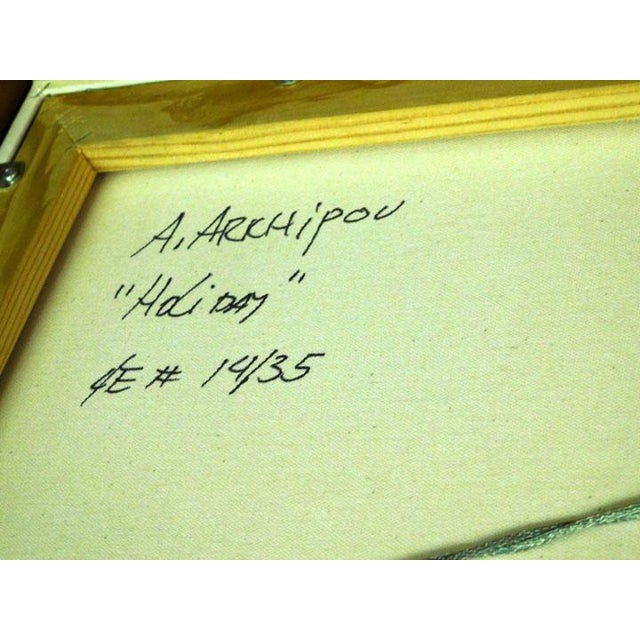 A. ARKHipov
"HOLiDAY"
LE # 14/35